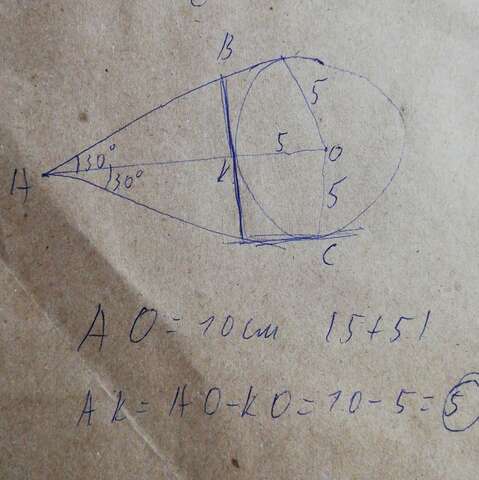 B
5
30°
5
O
A
K
30°
5
C
AO = 10 cm (5+5)
AK = AO - KO = 10 - 5 = 5